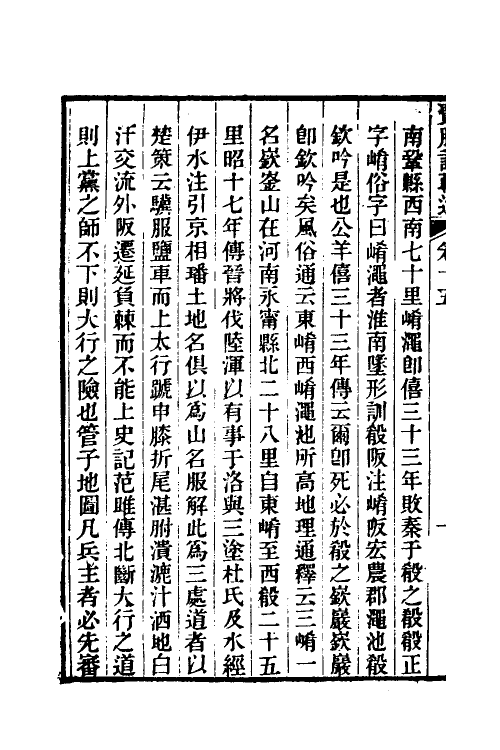 南鞏縣西南七十里崤澠卽僖三十三年敗秦于殽之殽殽正
字崤俗字曰崤澠者淮南墜形訓殽阪注崤阪宏農郡澠池殽
欽吟是也公羊僖三十三年傳云爾卽死必於殽之嶔巖嶔巖
卽欽吟矣風俗通云東崤西崤澠池所高地理通釋云三崤一
名嶔崟山在河南永甯縣北二十八里自東崤至西殽二十五
里昭十七年傳晉將伐陸渾以有事于洛與三塗杜氏及水經
伊水注引京相璠土地名俱以爲山名服解此爲三處道者以
楚策云驥服鹽車而上太行蹏申膝折尾湛胕潰漉汁洒地白
汗交流外阪遷延負棘而不能上史記范雎傳北斷大行之道
則上黨之師不下則大行之險也管子地圖凡兵主者必先審